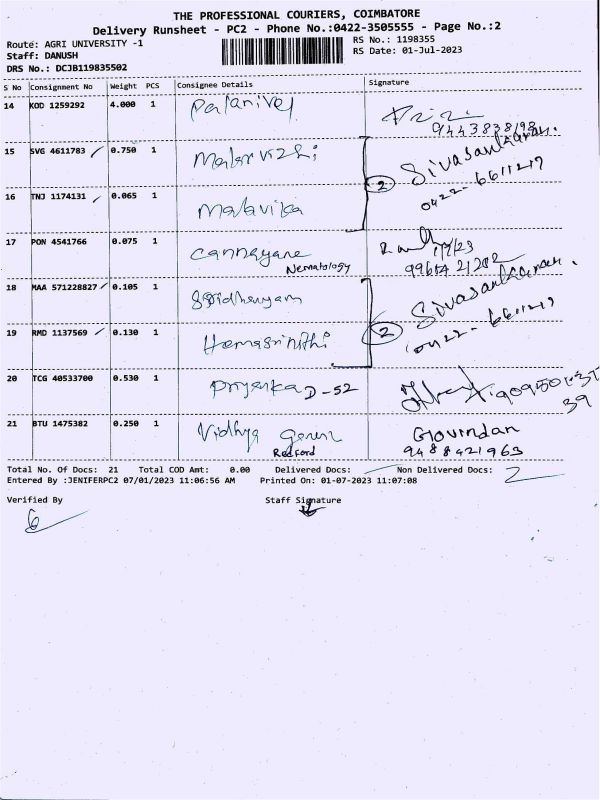 THE PROFESSIONAL COURIERS, COIMBATORE
Delivery Runsheet - PC2 - Phone No.:0422-3505555 - Page No.:2
Route: AGRI UNIVERSITY -1 RS No.: 1198355
Staff: DANUSH RS Date: 01-Jul-2023
DRS No.: DCJB119835502
S No Consignment No Weight PCS Consignee Details Signature
14 KOD 1259292 4.000 1 Palanivel
9443838198
15 SVG 4611783 0.750 1 Malarvizhi
Sivasankaran.
2 0422-6611217
16 TNJ 1174131 0.065 1 Malavika
17 PON 4541766 0.075 1 Cannayane
Nematology
18 MAA 571228827 0.105 1
Sivasankaran.
2 0422-6611217
19 RMD 1137569 0.130 1 Hemasrinithi
20 TCG 40533700 0.530 1 Priyanka D-52
39
21 BTU 1475382 0.250 1 Vidhya
Redford
Govindan
9488421963
Total No. Of Docs: 21 Total COD Amt: 0.00 Delivered Docs: Non Delivered Docs: 2
Entered By :JENIFERPC2 07/01/2023 11:06:56 AM Printed On: 01-07-2023 11:07:08
Verified By Staff Signature